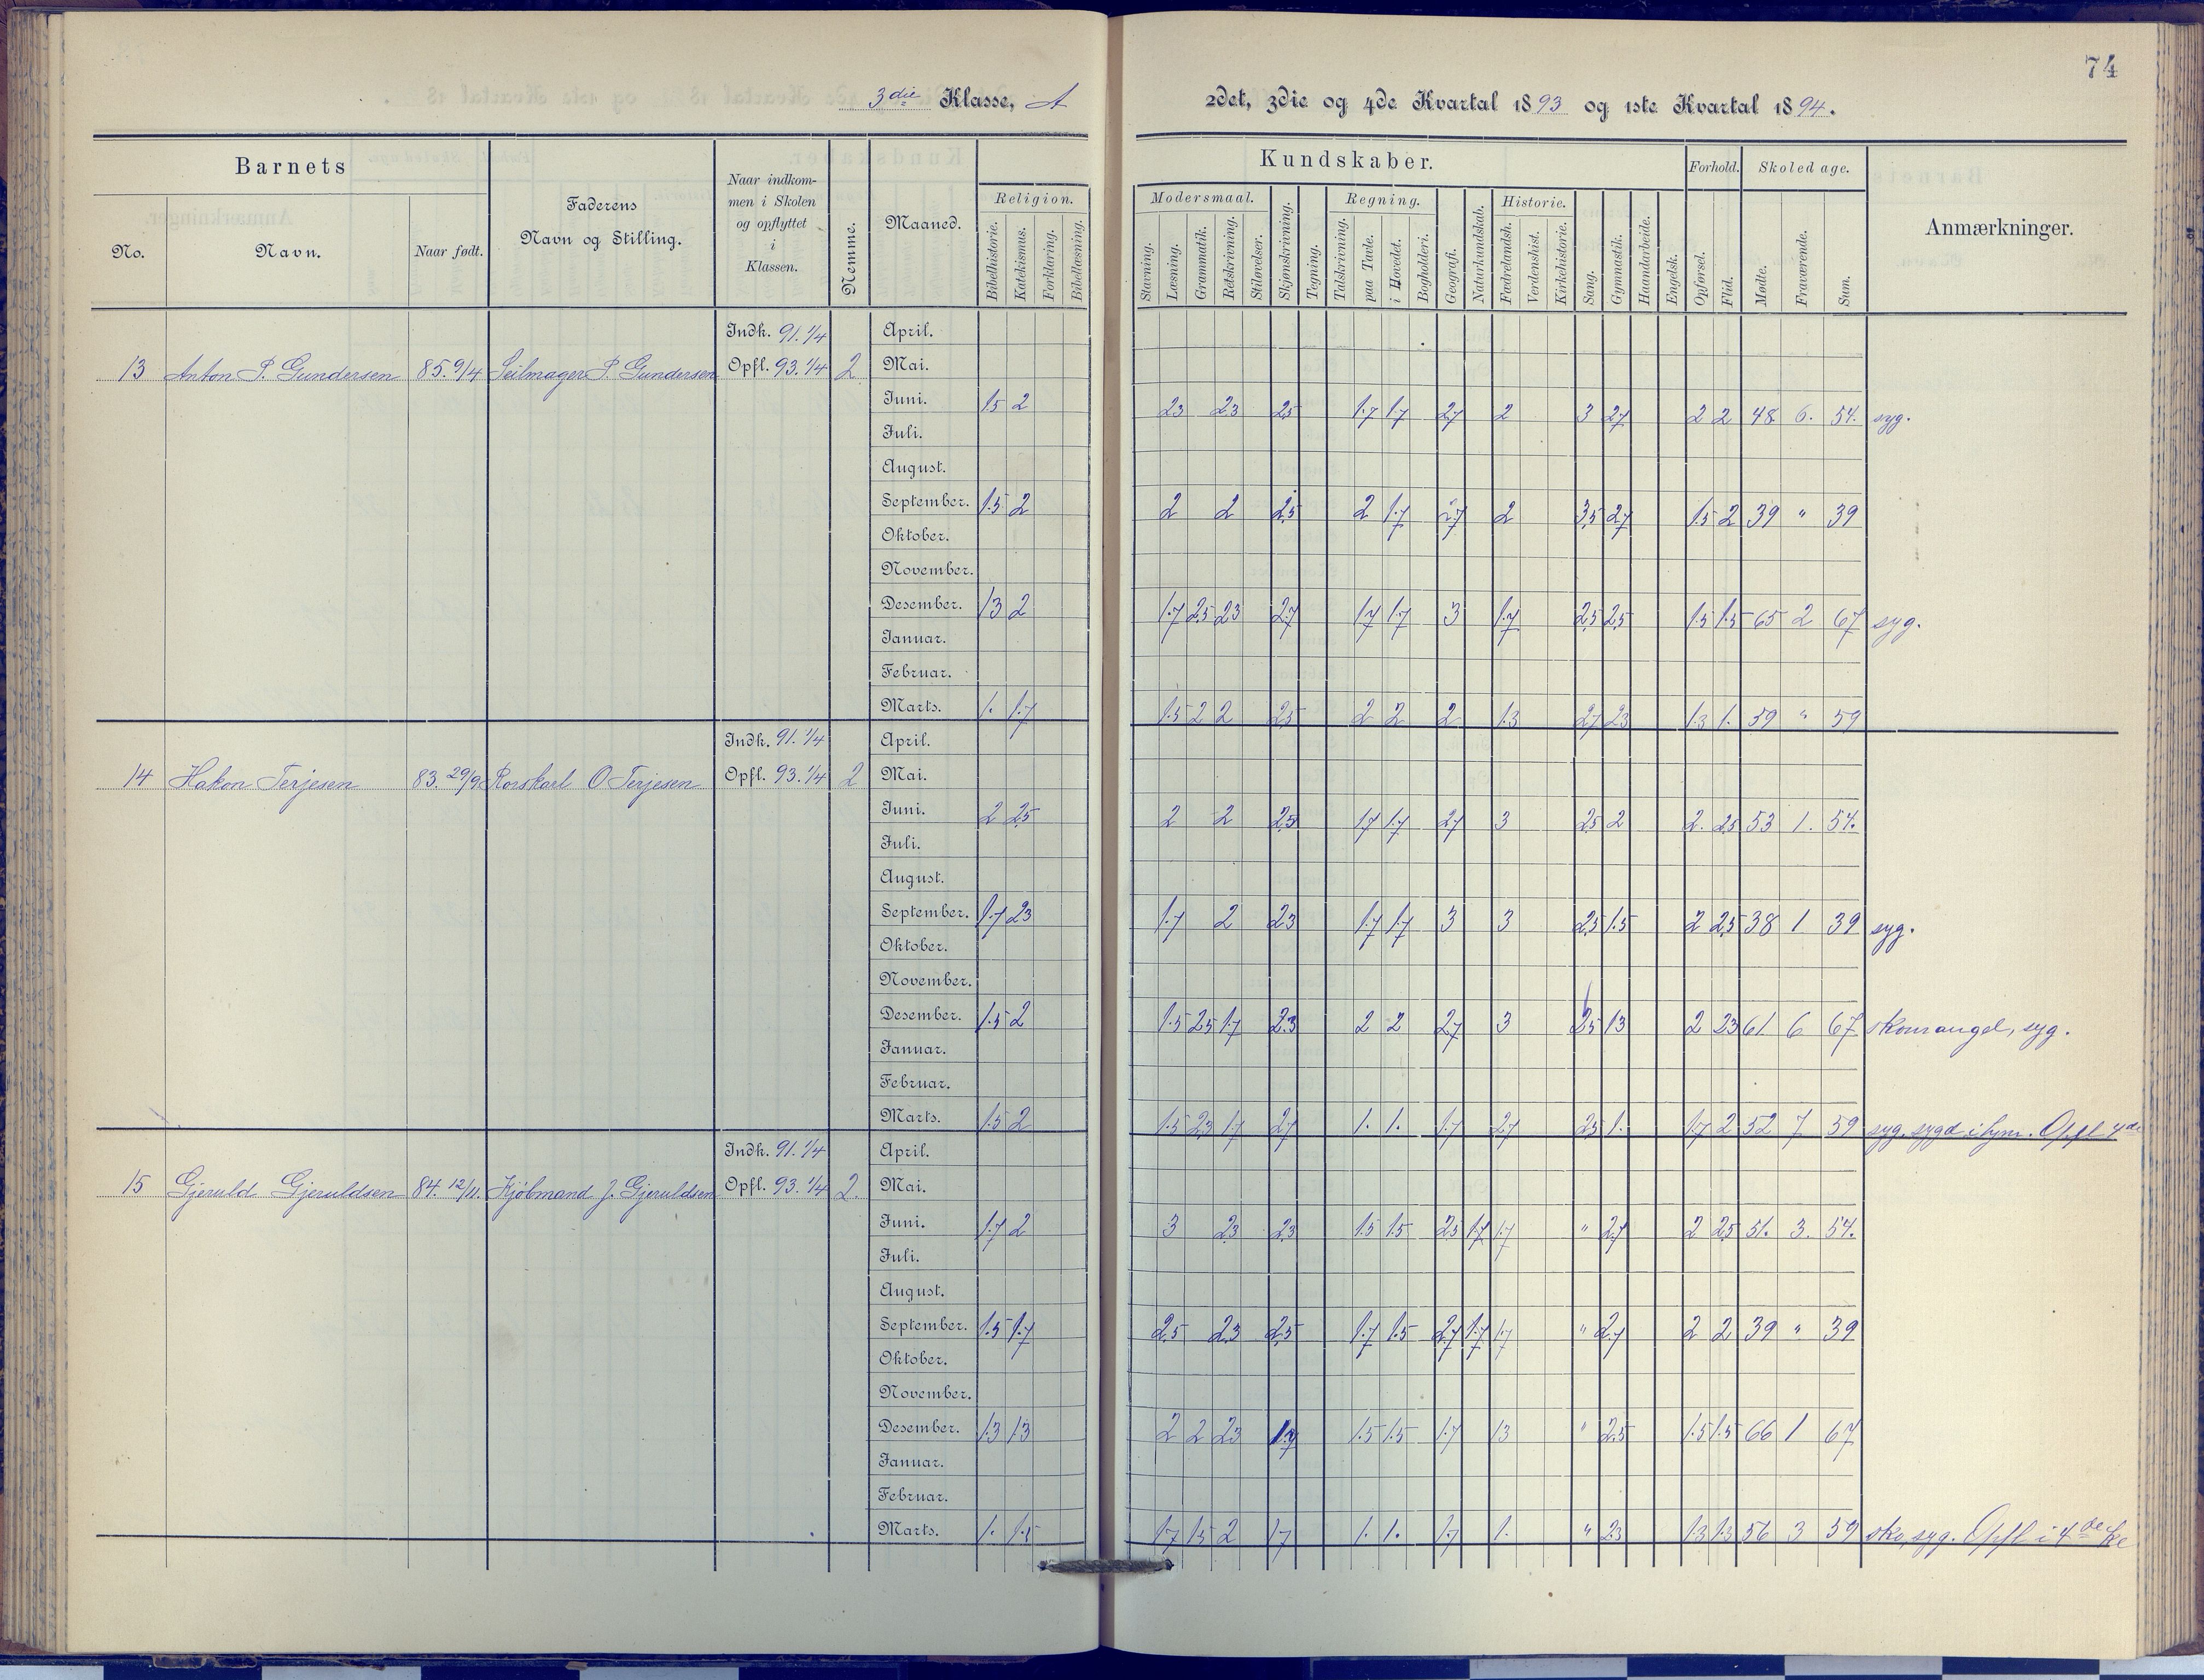 74
3die Klasse, A
2det, 3die og 4de Kvartal 1893 og 1ste Kvartal 1894.
Barnets
No. Navn. Naar født.
Faderens
Navn og Stilling.
Naar indkom-
men i Skolen
og opflyttet
i
Klassen.
Nemme.
Maaned.
Kundskaber.
Religion.
Bibelhistorie. Katekismus. Forklaring. Bibellæsning.
Modersmaal.
Stavning. Læsning. Grammatik. Retskrivning. Stiløvelser.
Skjønskrivning. Tegning.
Regning.
Talskrivning. paa Tavle. i Hovedet. Bogholderi.
Geografi. Naturkundskab.
Historie.
Fædrelandsh. Verdenshist. Kirkehistorie.
Sang. Gymnastik. Haandarbeide. Engelsk.
Forhold.
Opførsel. Flid.
Skoledage.
Mødte. Fraværende. Sum.
Anmærkninger.
Indk. 91. 1/4 April.
13 Anton P. Gundersen 85. 9/4 Seilmager P. Gundersen Opfl. 93. 1/4 2 Mai.
Juni. 1.5 2 23 23 25 1.7 1.7 27 2 3 27 2 2 48 6. 54. syg.
Juli.
August.
September. 1.5 2 2 2 2.5 2 1.7 2.7 2 3.5 27 1.5 2 39 " 39
Oktober.
November.
Desember. 1.3 2 1.7 2.5 23 2.7 1.7 1.7 3 1.7 25 25 1.5 1.5 65 2 67 syg.
Januar.
Februar.
Marts. 1. 1.7 1.5 2 2 2.5 2 2 2 1.3 27 23 1.3 1. 59 " 59
Indk. 91. 1/4 April.
14 Hakon Terjesen 83. 29/9 Rorskarl O Terjesen Opfl. 93. 1/4 2 Mai.
Juni. 2 25 2 2 2.5 1.7 1.7 27 3 25 2 2. 25 53 1. 54.
Juli.
August.
September. 1.7 23 1.7 2 23 1.7 1.7 3 3 2.5 1.5 2 2.5 38 1 39 syg.
Oktober.
November.
Desember. 1.5 2 1.5 25 1.7 2.3 2 2 27 3 25 13 2 23 61. 6 67 skomangel, syg.
Januar.
Februar.
Marts. 1.5 2 1.5 23 1.7 27 1. 1. 1.7 27 25 1. 1.7 2 52 7 59 syg, sygd i hjm. Opfl 4de
Indk. 91. 1/4 April.
15 Gjeruld Gjeruldsen 84. 12/11. Kjøbmand J. Gjeruldsen Opfl. 93. 1/4 2. Mai.
Juni. 1.7 2 3 23 23 1.5 1.5 25 1.7 1.7 " 2.7 2 25 51. 3. 54.
Juli.
August.
September. 1.5 1.7 2.5 23 2.5 1.7 1.5 2.7 1.7 1.7 " 2.7 2 2 39 " 39
Oktober.
November.
Desember. 1.3 1.3 2 2 23 1.7 1.5 1.5 1.7 13 " 2.5 1.5 1.5 66 1 67
Januar.
Februar.
Marts. 1. 1.5 1.7 1.5 2 1.7 1. 1. 1.7 1. " 2.3 1.3 1.3 56 3 59 sko, syg. Opfl i 4de kl